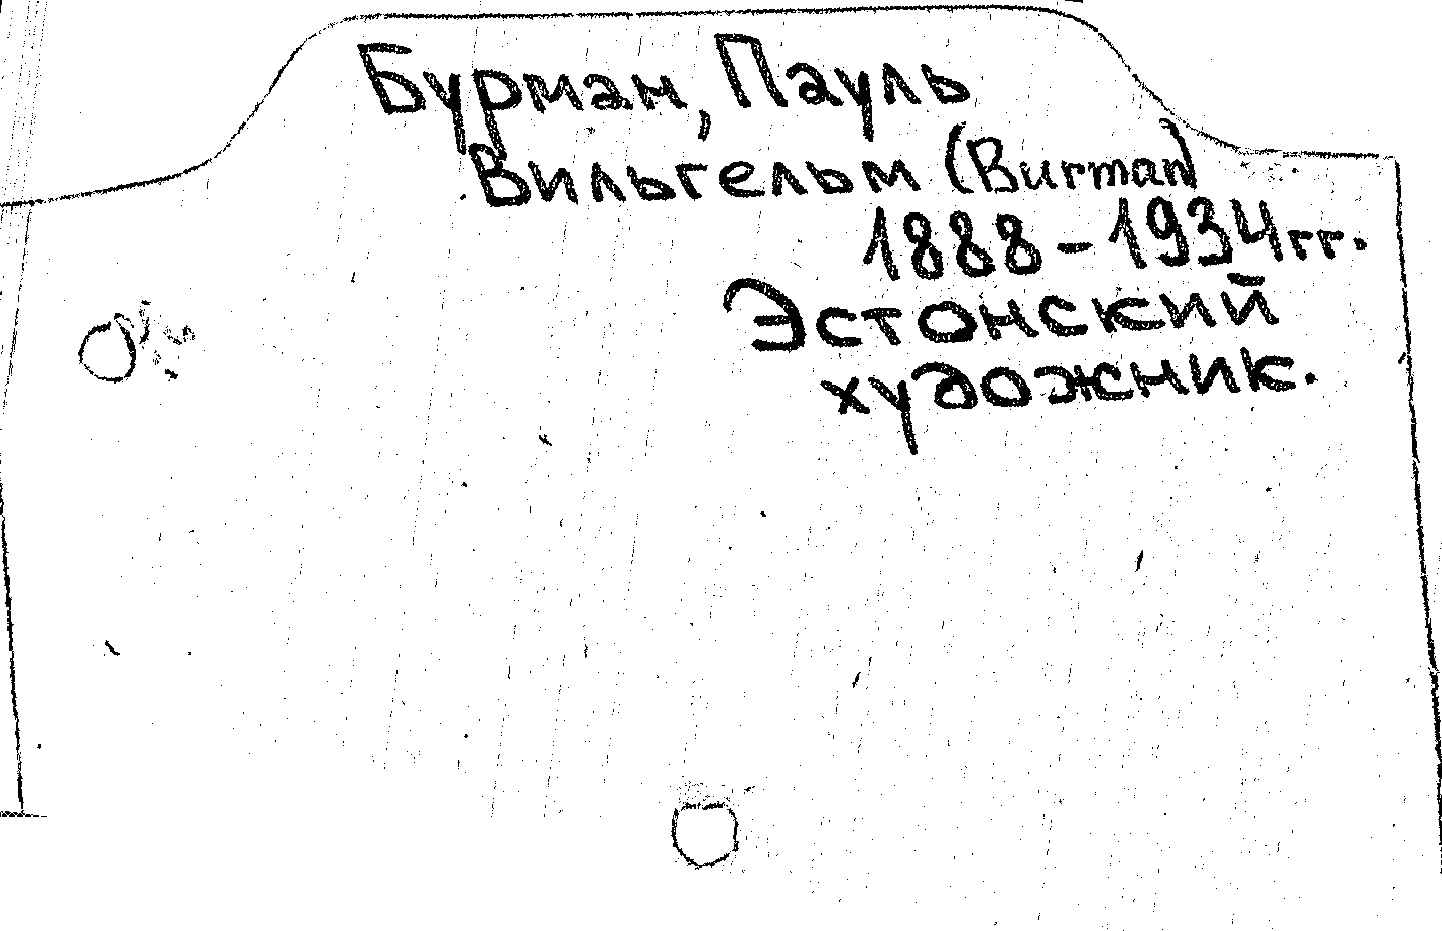 Бурман, Пауль
Вильгельм (Burman)
1888-1934гг.
Эстонский
художник.